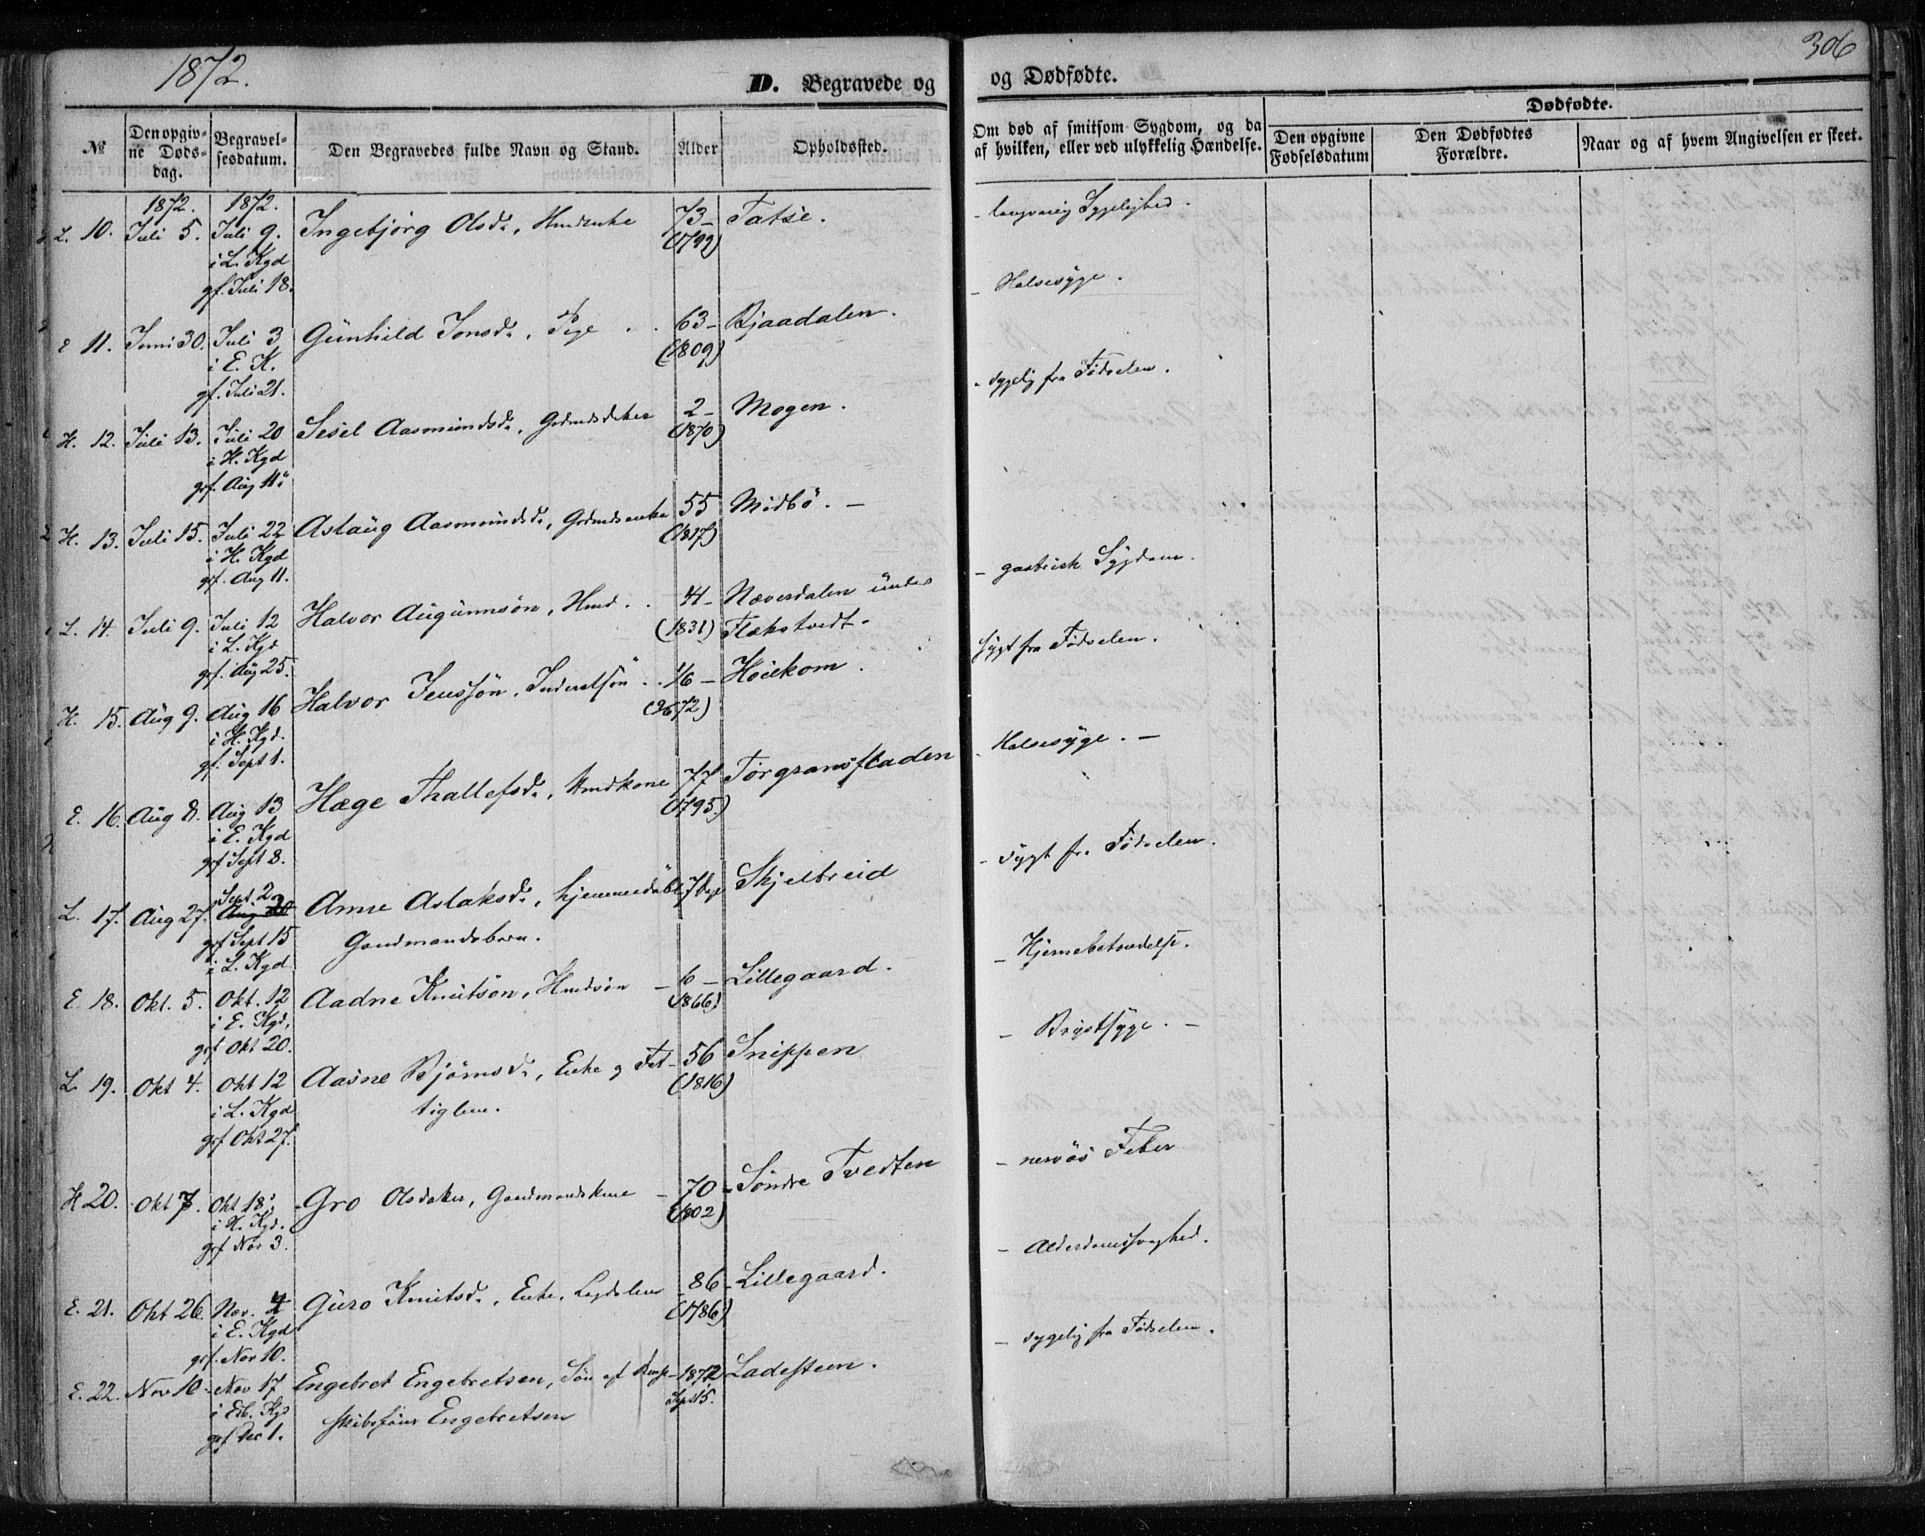 1872.
D. Begravede og
og Dødfødte.
306
№
Den opgivne Dødsdag.
Begravelsesdatum.
Den Begravedes fulde Navn og Stand.
Alder
Opholdssted.
Om død af smitsom Sygdom, og da af hvilken, eller ved ulykkelig Hændelse.
Dødfødte.
Den opgivne Fødselsdatum
Den Dødfødtes Forældre.
Naar og af hvem Angivelsen er skeet.
1872. 1872.
L. 10. Juli 5. Juli 9. Ingebjörg Olsd., Hmdenke 73 – Tatse. – langvarig Sygelighed.
i L. Kgd (1799)
gf. Juli 18.
E 11. Juni 30. Juli 3 Günhild Jonsd., Pige 63 – Bjaadalen. – Halssyge.
i E. K. (1809)
gf. Juli 21.
H. 12. Juli 13. Juli 20 Sesel Aasmundsd., 2 – Mogen. – sygelig fra Fødselen.
i H. Kgd (1870)
gf. Aug 11.
H. 13. Juli 15. Juli 22 Aslaüg Aasmundsd., 55 Midbö. –
i H. Kgd (1817)
gf. Aug 11.
– gastrisk Sygdom.
L. 14. Juli 9. Juli 12 Halvor Augunnsön, Hmd. 41 – Næverdalen ünder
i L. Kgd (1831) Flekstvedt –
gf. Aug 25.
sygt fra Fødselen.
H. 15. Aug 9. Aug 16 Halvor Jenssön, 16 – Höiekom.
i H. Kgd. (72)
gf. Sept 1.
– Halssyge. –
E. 16. Aug 8. Aug 13 Hæge Thallefsd., Hmdkone 77 Torgransfladen
i E. Kgd (1795)
gf Sept 8.
– sygt fra Fødselen.
L. 17. Aug 27. Sept. 2 Anne Aslaksd., hjemmedöbt 7 Skjelbreid
gf Sept 15 Gaardmandsbarn.
i L. Kgd
– Hjernebetændelse.
E 18. Okt. 5. Okt. 12 Aadne Knütsön, Hmdsön – 6 – Lillegaard.
i E. Kgd. (1866)
gf Okt 20.
– Brystsyge. –
L 19. Okt 4. Okt 12 Aasne Björnsd., Enke og Fat– 56 Snippen
i L. Kgd tiglem. (1816)
gf Okt 27.
– nervös Feber
H 20. Okt 7. Okt 18. Gro Olsdater, Gaardmandskone – 70 – Søndre Tvedten
i H. Kgd. (1802)
gf Nov 3.
– Alderdomssvaghed.
E. 21. Okt 26. Nov. 4 Güro Knütsd., Enke, Legdslem – 86 – Lillegaard.
i E. Kgd (1786)
gf. Nov 10.
– sygelig fra Fødselen.
E. 22. Nov 10. Nov 17 Engebret Engebretsen, Sön af – 1872 Ladesteen.
i Kgd Engebretsen Sept 15.
gf Dec 1.